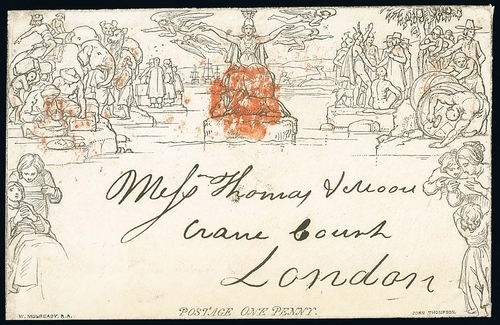 Messrs Thomas & Moore
Crane Court
London
W. MULREADY. R.A.
POSTAGE ONE PENNY.
JOHN THOMPSON.